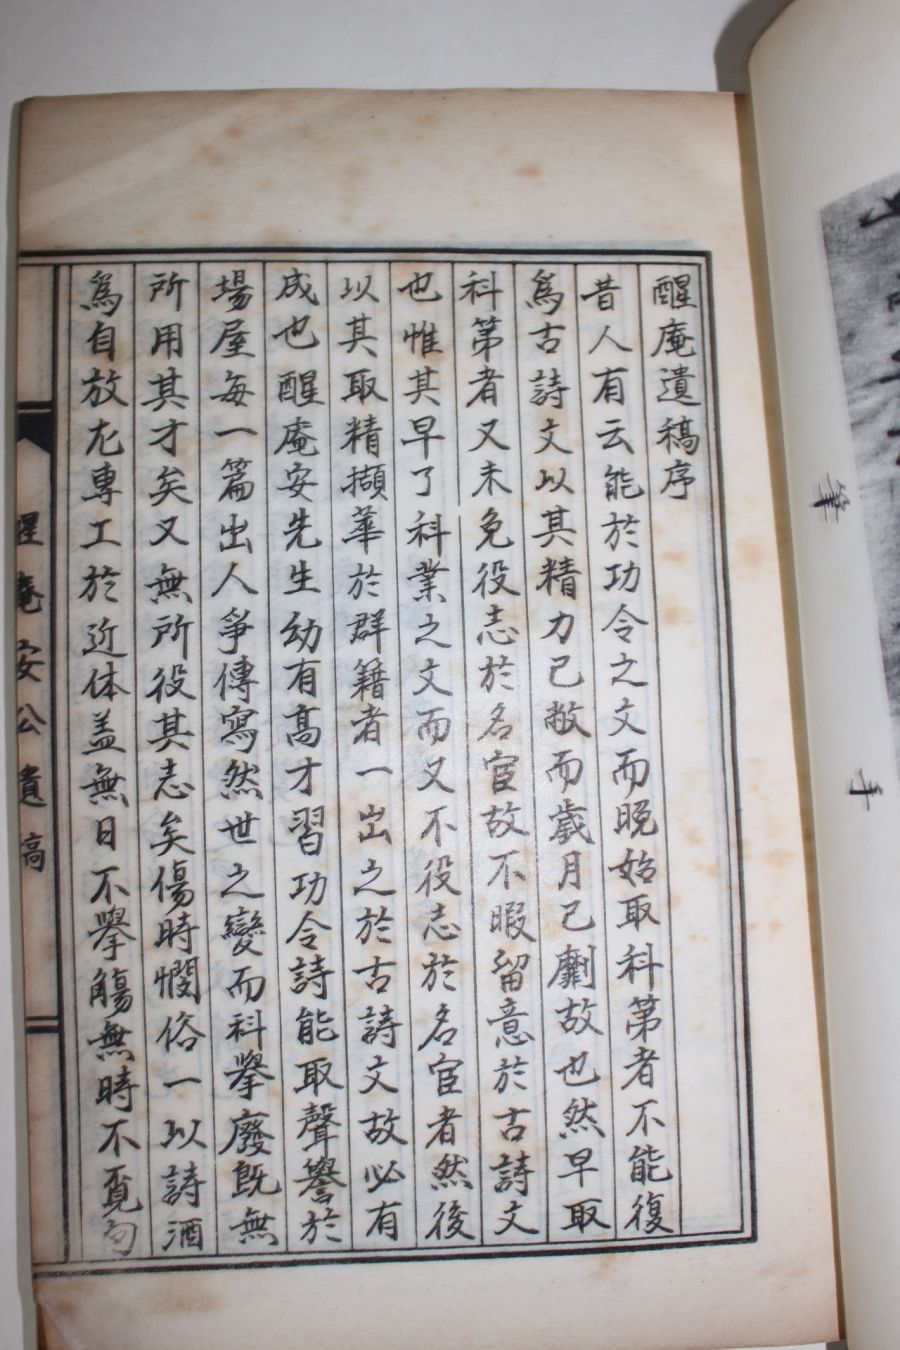 醒庵遺稿序
昔人有云能於功令之文而晩始取科第者不能復
爲古詩文以其精力已敝而歲月已劘故也然早取
科第者又未免役志於名宦故不暇留意於古詩文
也惟其早了科業之文而又不役志於名宦者然後
以其取精擷華於群籍者一出之於古詩文故必有
成也醒庵安先生幼有高才習功令詩能取聲譽於
場屋每一篇出人爭傳寫然世之變而科擧廢旣無
所用其才矣又無所役其志矣傷時憫俗一以詩酒
爲自放尤專工於近体盖無日不擧觴無時不覔句
醒庵安公遺稿